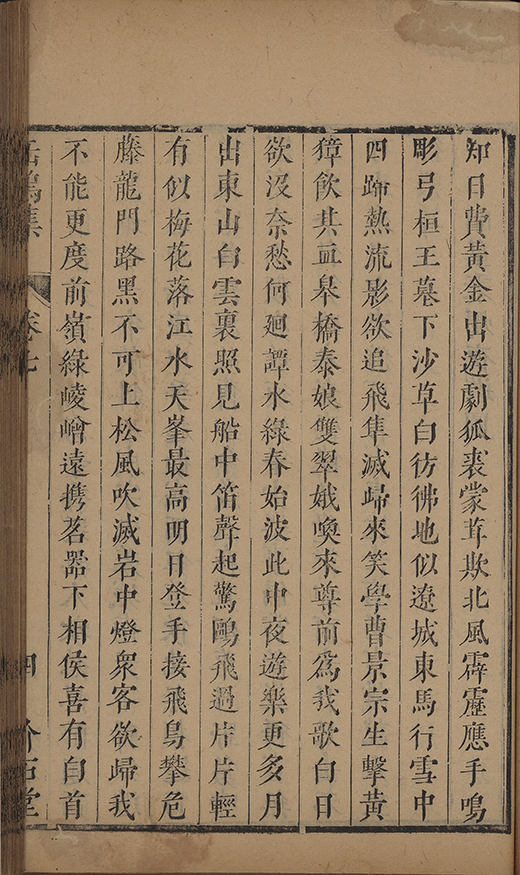 知日費黃金出遊劇狐裘蒙茸欺北風霹靂應手鳴
彫弓桓王墓下沙草白彷彿地似遼城東馬行雪中
四蹄熱流影欲追飛隼滅歸來笑學曹景宗生擊黃
獐飲其血皋橋泰娘雙翠娥喚來尊前爲我歌白日
欲沒奈愁何廻譚水綠春始波此中夜遊樂更多月
出東山白雲裏照見船中笛聲起驚鷗飛過片片輕
有似梅花落江水天峯最高明日登手接飛鳥攀危
藤龍門路黑不可上松風吹滅岩中燈衆客欲歸我
不能更度前嶺綠崚嶒遠携茗器下相侯喜有白首
鳴集 卷七 四